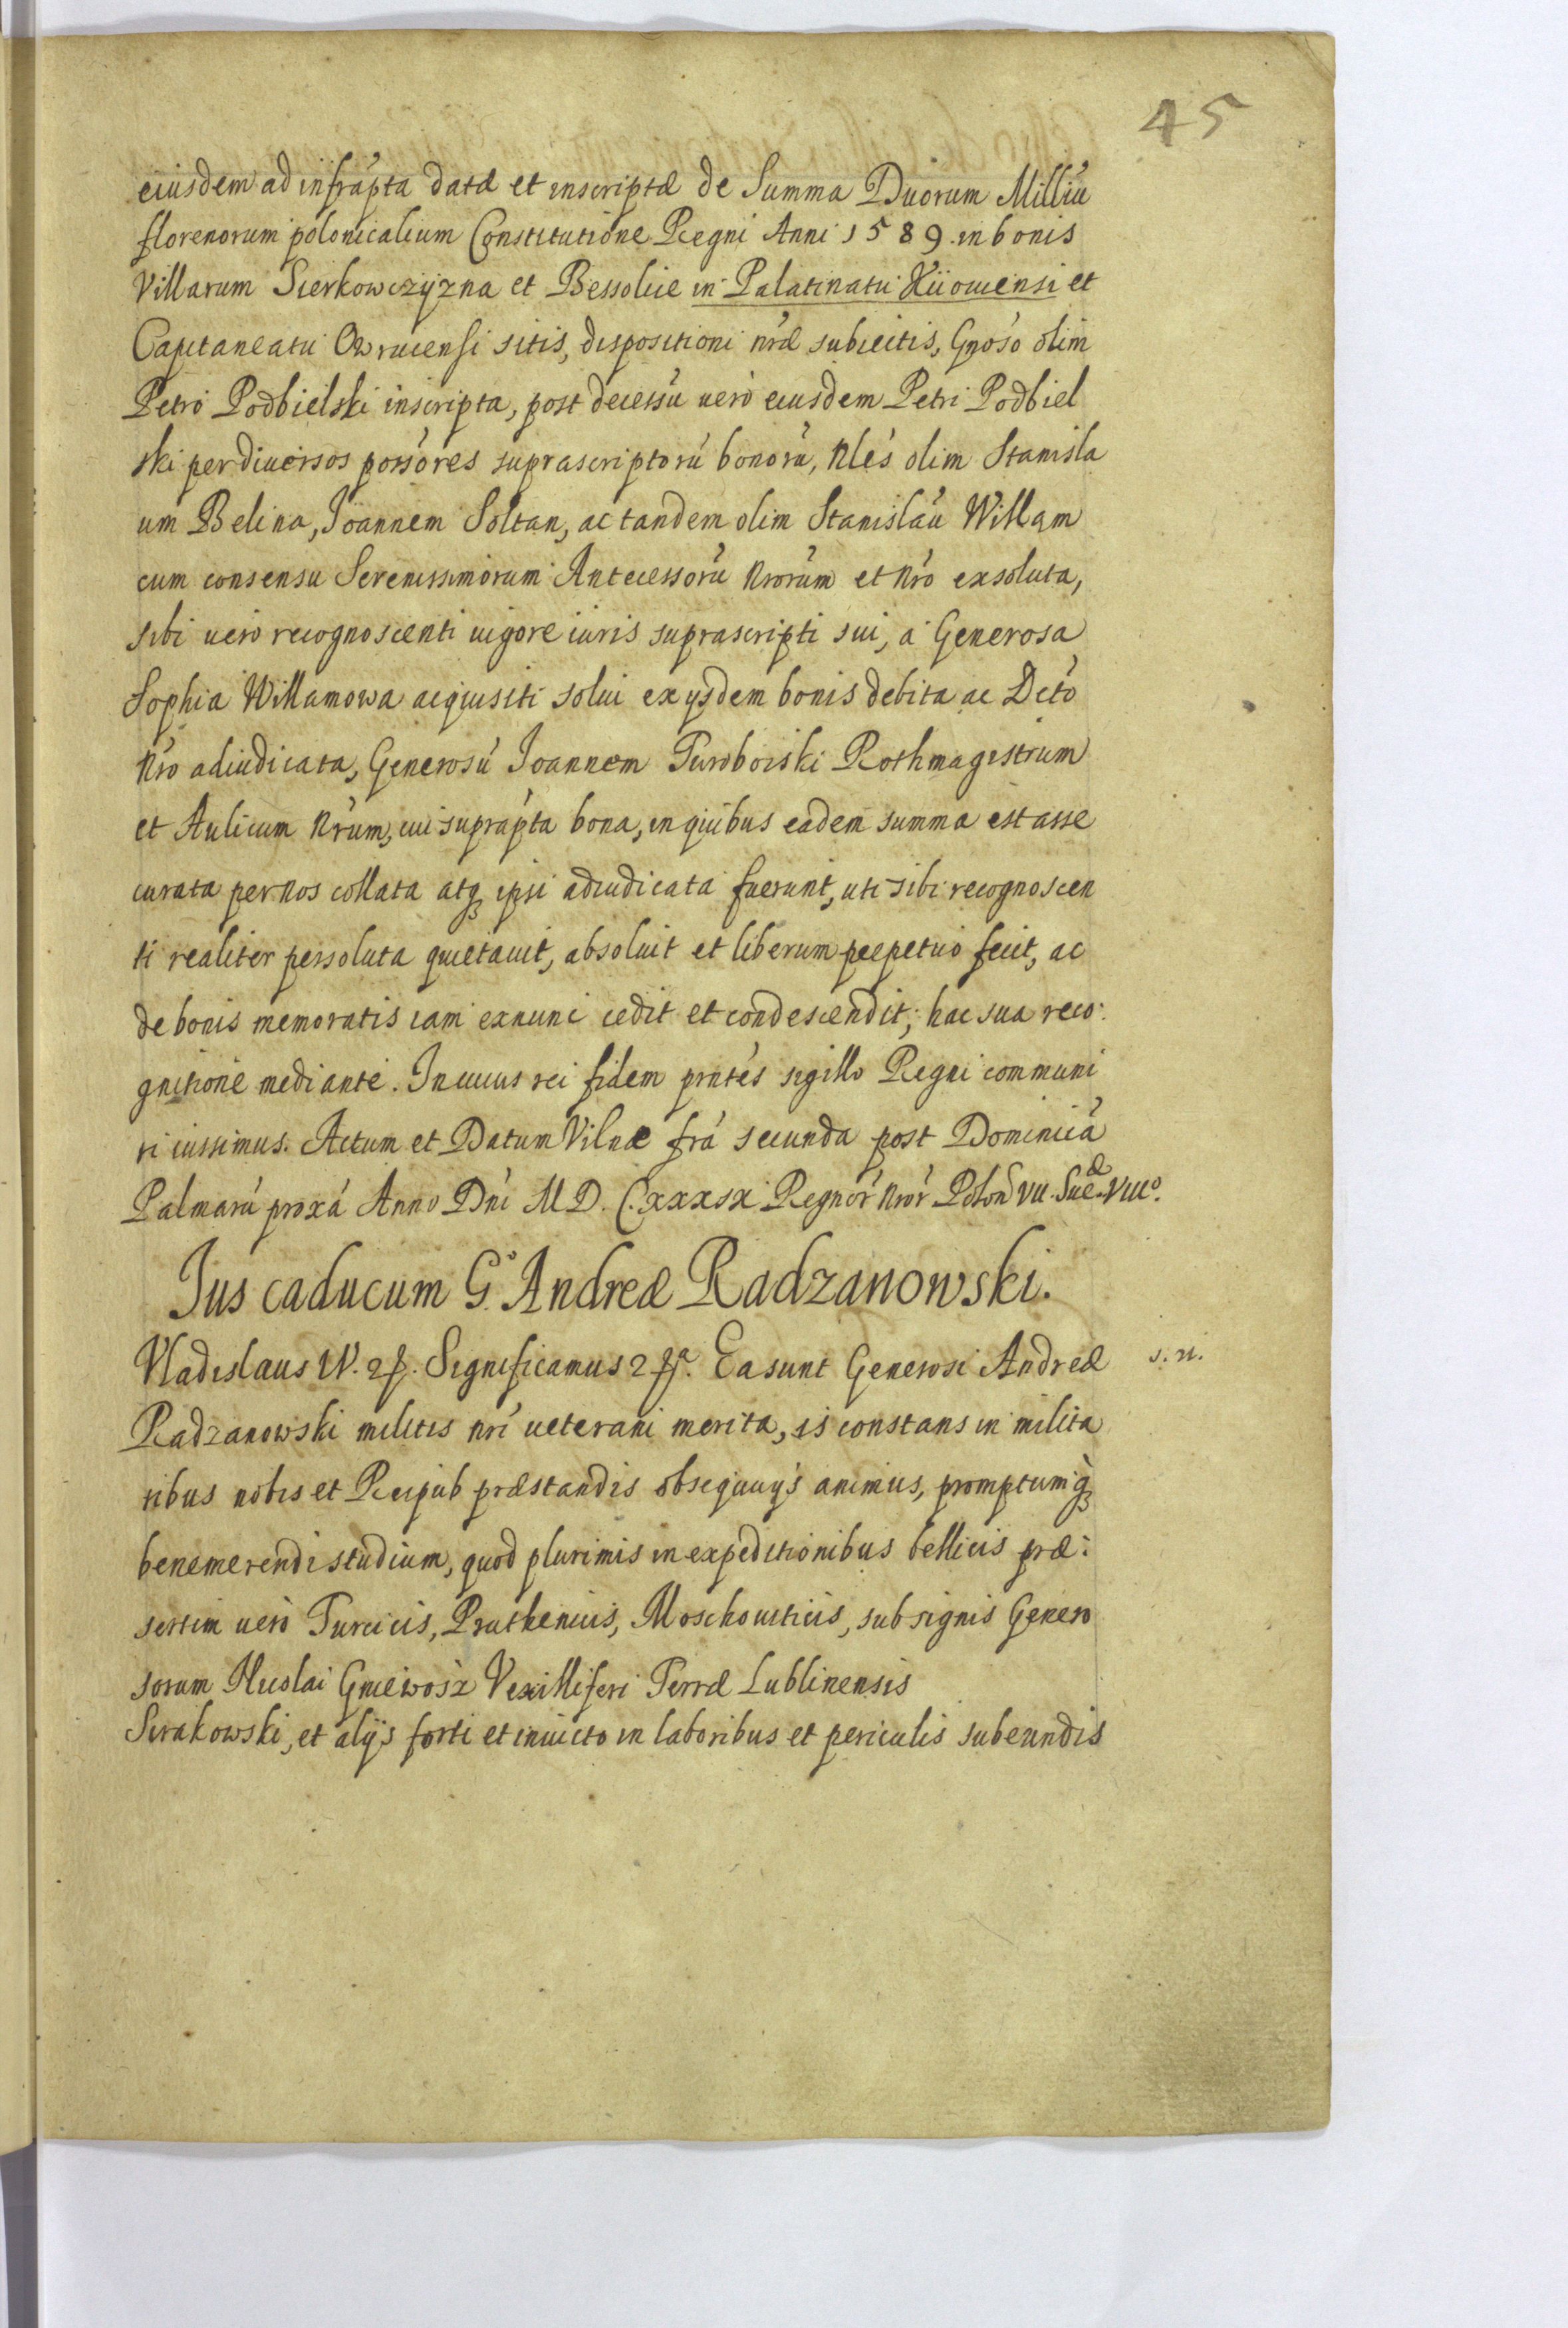 45
eiusdem ad infrápta datæ et inscriptæ de Summa Duorum Milliú
florenorum polonicalium Constitutione Regni Anni 1589. in bonis
Villarum Sierkowczyzna et Bessolue in Palatinatu Kiiouiensi et
Capitaneatu Owrucensi sitis, dispositioni nrǽ subiectis, Gnoso olim
Petro Podbielski inscripta, post decessú uero eiusdem Petri Podbiel
ski per diuersos possóres suprascriptorú bonorú, Nlés olim Stanisla
um Belina, Joannem Soltan, ac tandem olim Stanisláu Willam
cum consensu Serenissimorum Antecessorú Nrorúm et Nró exsoluta,
sibi uero recognoscenti uigore iuris suprascripti sui, a Generosa
Sophia Willamowa acquisiti solui ex ysdem bonis debita ac Dctó
Nro adiudicata, Generosú Joannem Turoboiski Rothmagistrum
et Aulicum Nrúm, cui suprápta bona, in quibus eadem summa est asse
curata per nos collata atq ipsi adiudicata fuerunt, uti sibi recognoscen
ti realiter persoluta quietauit, absoluit et liberum perpetuo fecit, ac
de bonis memoratis iam exnunc cedit et condescendit, hac sua reco:
gnitione mediante. In cuius rei fidem prntés sigillo Regni communi
ri iussimus. Actum et Datum Vilnæ frá secunda post Dominicá
Palmarú proxá Anno Dni M D. C. xxxix Regnor Nror Polon VII. Suæ. VIII°.
Jus caducum G° Andreæ Radzanowski.
Vladislaus IV. &. Significamus &. Ea sunt Generosi Andreæ
s. n.
Radzanowski militis nri ueterani merita, is constans in milita
ribus nobis et Reipub præstandis obsequys animus, promptumq
benemerendi studium, quod plurimis in expeditionibus bellicis præ:
sertim uero Turcicis, Pruthenicis, Moschouiticis, sub signis Genero
sorum Nicolai Gniewosz Vexilliferi Terræ Lublinensis
Sirakowski, et alijs forti et inuicto in laboribus et periculis subeundis